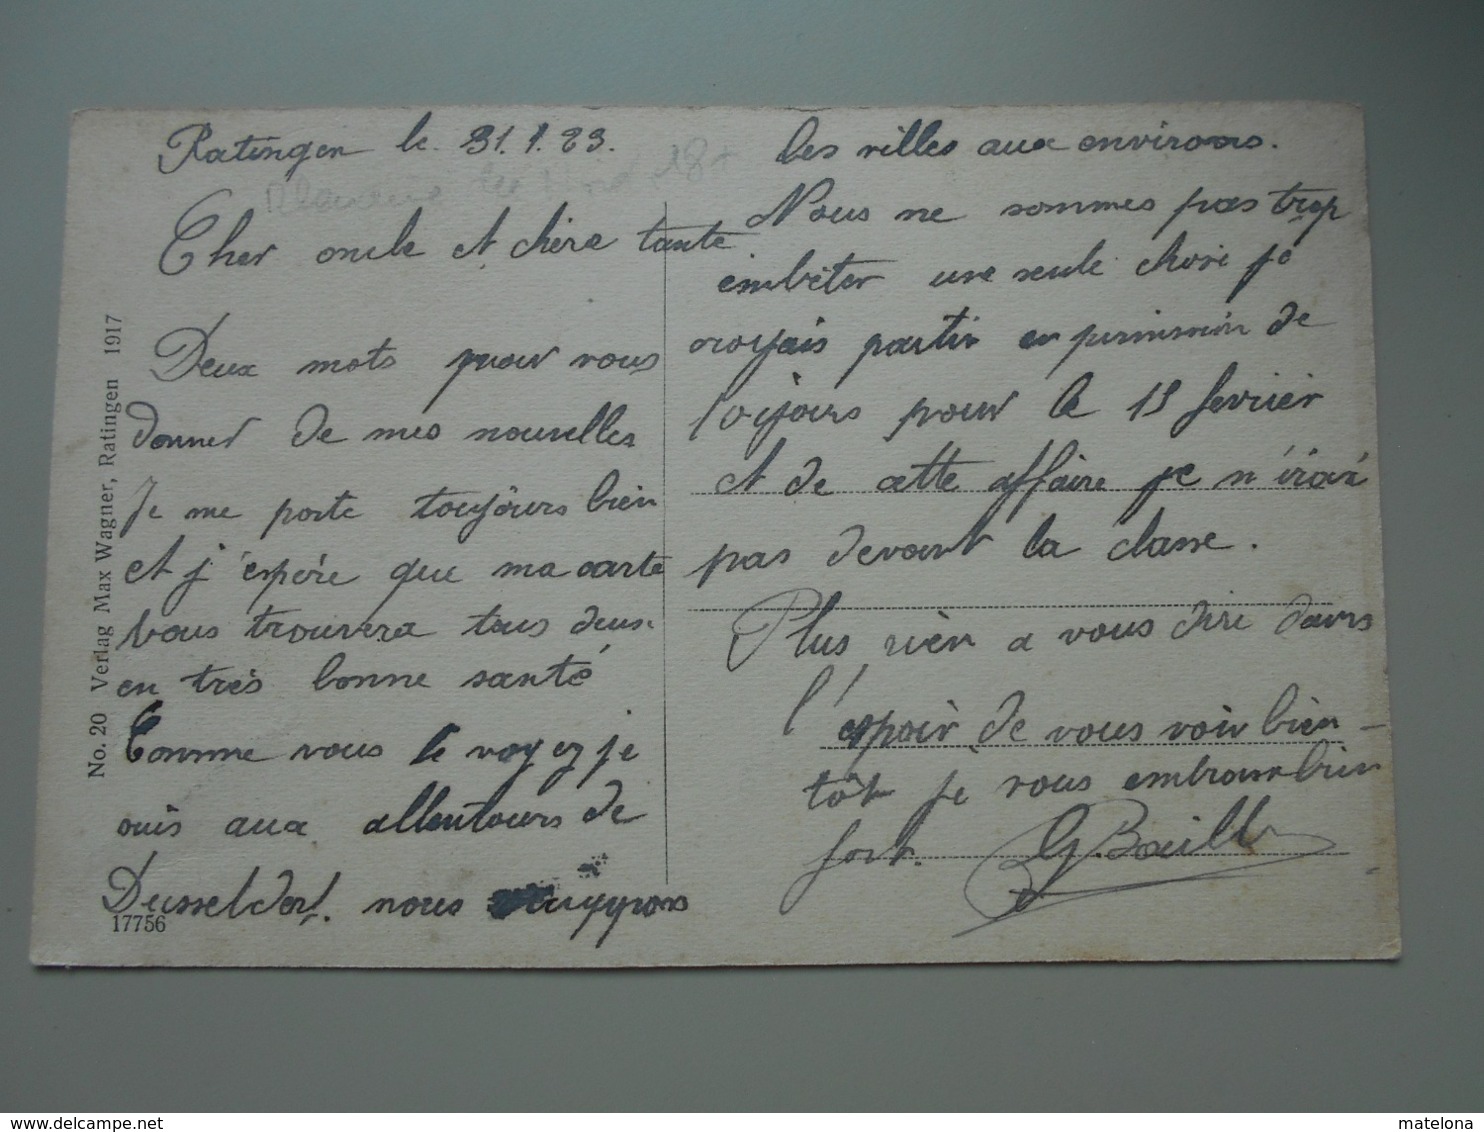 Ratingen le 31.1.23.
Cher oncle et chère tante
Deux mots pour vous
donner de mes nouvelles
Je me porte toujours bien
et j'éspére que ma carte
vous trouvera tous deux
en très bonne santé
Comme vous le voyez je
suis aux allentours de
Dusseldorf. nous occuppons
les villes aux environs.
Nous ne sommes pas trop
embèter une seule chose je
croyais partir en permission de
10 jours pour le 15 fevrier
et de cette affaire je n'irai
pas devant la classe.
Plus rien a vous dire dans
l'espoir de vous voir bien-
tôt je vous embrasse bien
fort. G. Baill
No. 20 Verlag Max Wagner, Ratingen 1917
17756
matelona